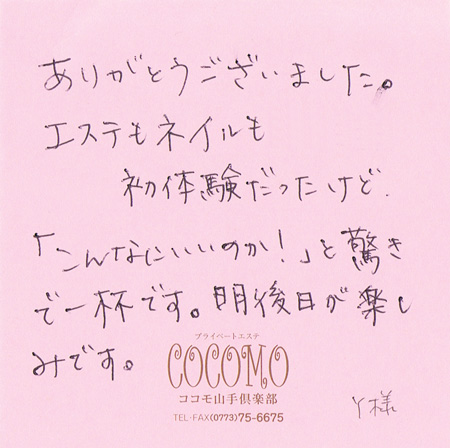 ありがとうございました。
エステもネイルも
初体験だったけど、
「こんなにいいのか!」と驚き
で一杯です。明後日が楽し
みです。
プライベートエステ
COCOMO
ココモ山手倶楽部
TEL・FAX(0773)75-6675
Y様